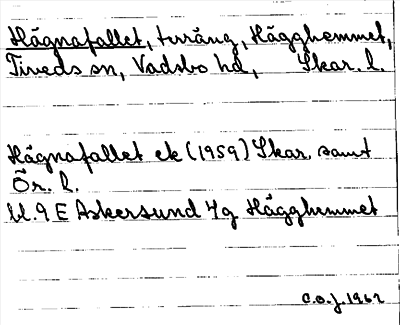 Hägnafallet, terräng, Hägghemmet,
Tiveds sn, Vadsbo hd, Skar. l.
Hägnafallet ek (1959) Skar. samt
Ör. l.
Bl. 9 E Askersund 7g Hägghemmet
C.O.J. 1962